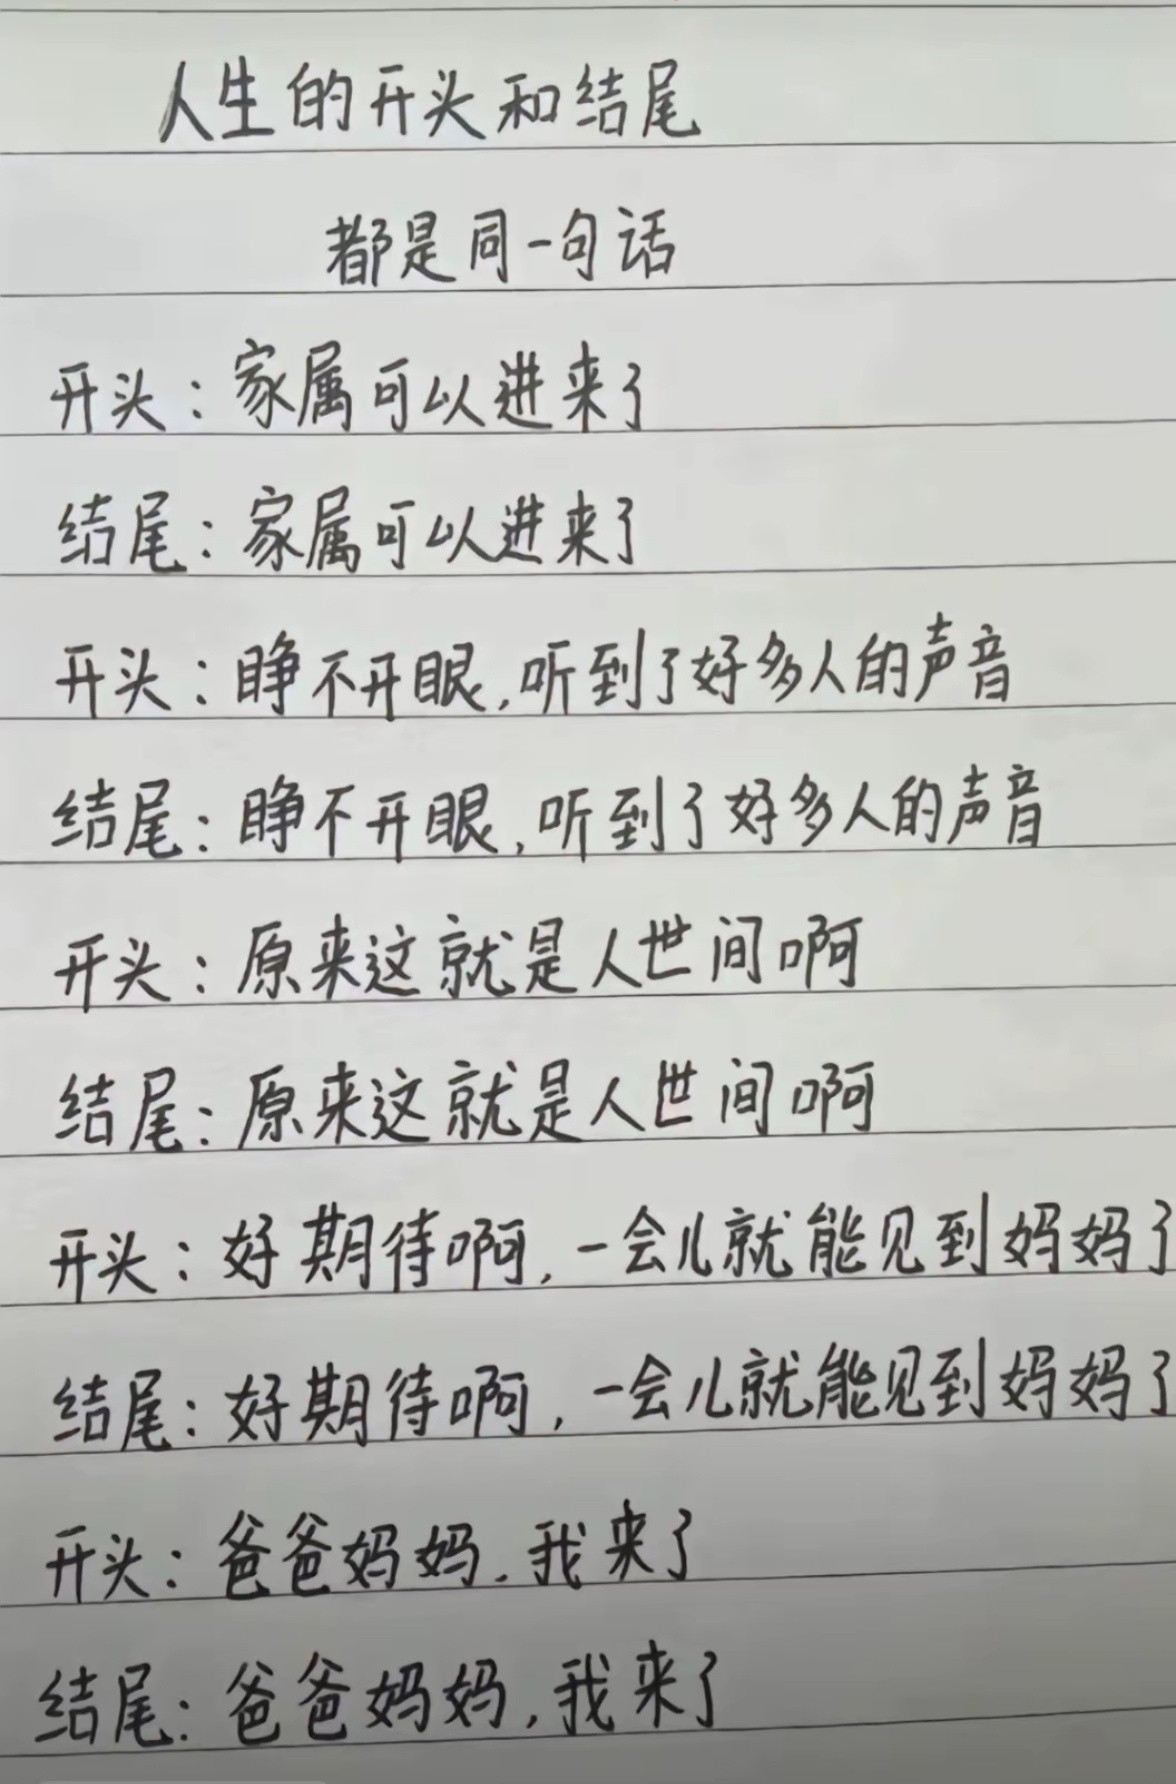 人生的开头和结尾
都是同一句话
开头：家属可以进来了
结尾：家属可以进来了
开头：睁不开眼，听到了好多人的声音
结尾：睁不开眼，听到了好多人的声音
开头：原来这就是人世间啊
结尾：原来这就是人世间啊
开头：好期待啊，一会儿就能见到妈妈了
结尾：好期待啊，一会儿就能见到妈妈了
开头：爸爸妈妈，我来了
结尾：爸爸妈妈，我来了